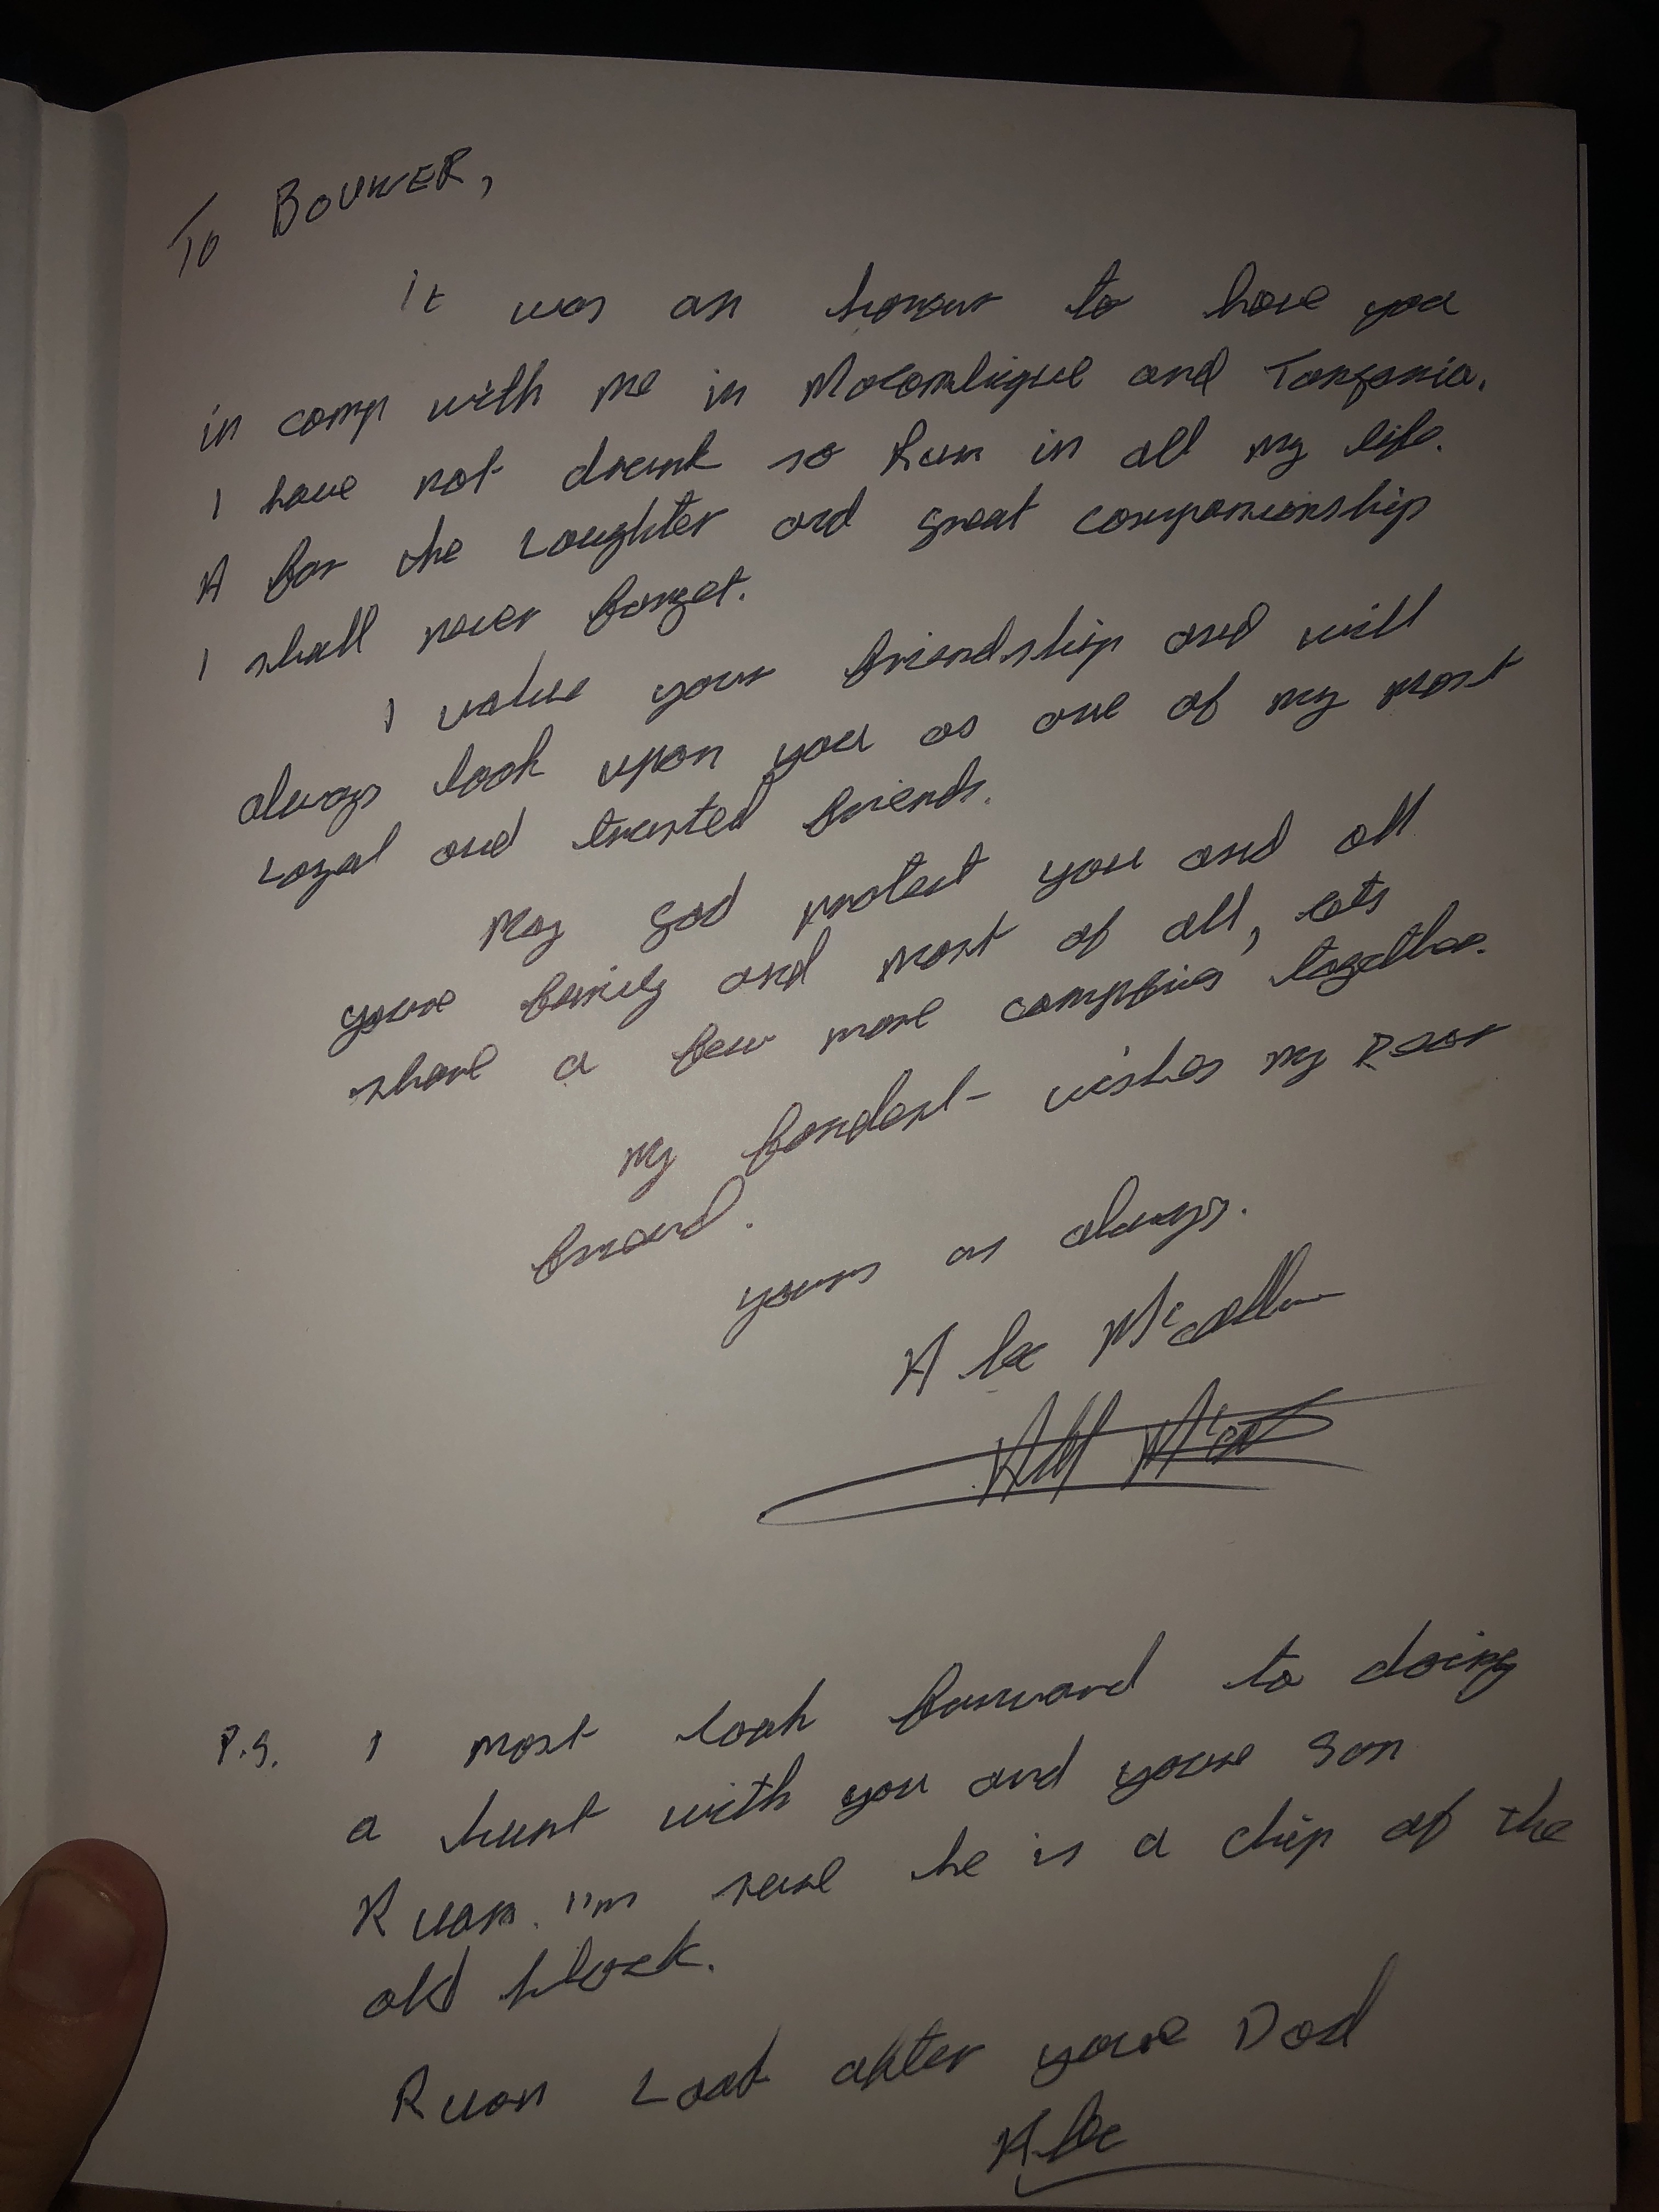 To BOUWER,
It was an honour to have you
in camp with me in Mocambique and Tanzania.
I have not drunk so Rum in all my life.
A for the Laughter and great companionship
I shall never forget.
I value your friendship and will
always look upon you as one of my most
Loyal and trusted friends.
May god protect you and all
youre family and most of all, lets
share a few more together.
My fondest wishes my Dear
friend.
yours as always.
P.S. I most look forward to doing
a hunt with you and youre son
Ruan. I'm sure he is a chip of the
old block.
Ruan Look after youre Dad